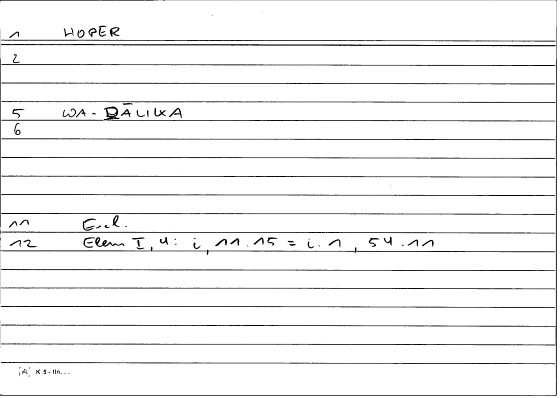 1 HOPER
2
5 WA-ḎĀLIKA
6
11 Eucl.
12 Elem I, 4: i, 11.15 = i.1, 54.11